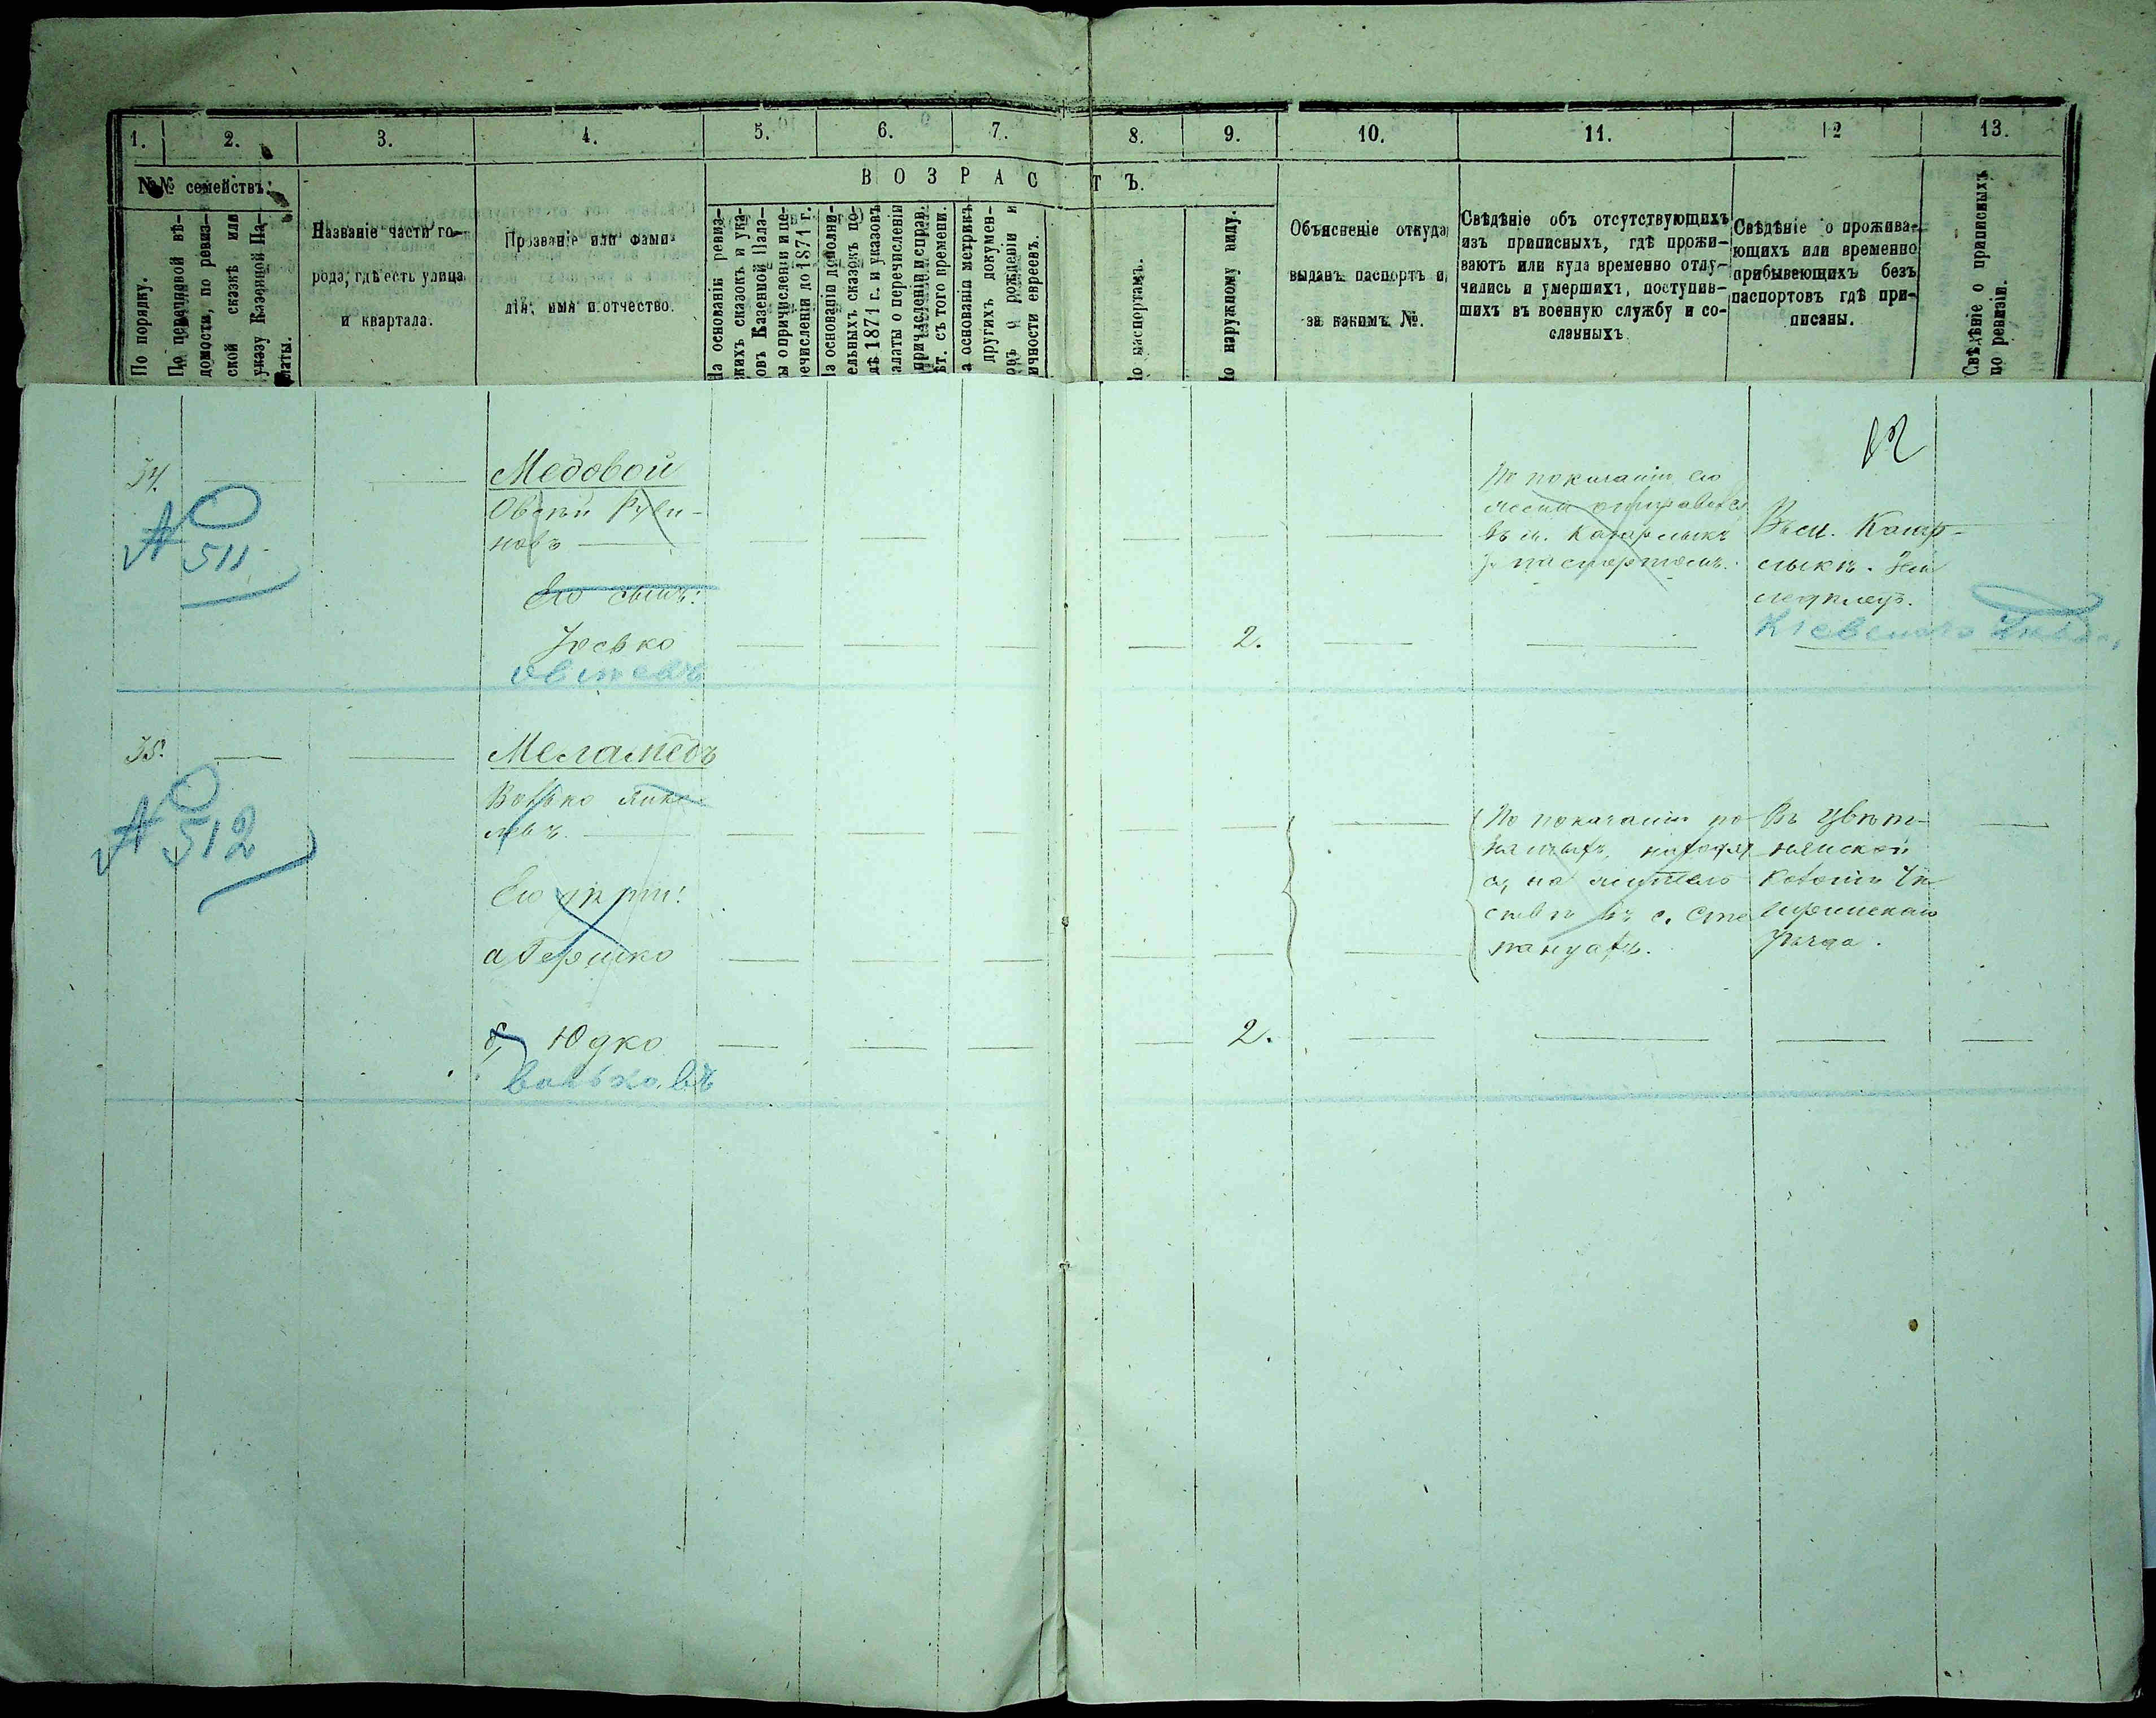 1. 2. 3. 4. 5. 6. 7. 8. 9. 10. 11. 12 13.
№№ семействъ.
В О З Р А С Т Ъ.
По порядку.
По перечневой вѣ-
домости, по ревиз-
ской сказкѣ или
указу Казенной Па-
латы.
Названіе части го-
рода, гдѣ есть улица
и квартала.
Прозваніе или фами-
лія, имя и отчество.
На основаніи ревиз-
скихъ сказокъ и ука-
зовъ Казенной Пала-
ты о причисленіи и пе-
речисленіи до 1871 г.
На основаніи дополни-
тельныхъ сказокъ по-
слѣ 1871 г. и указовъ
палаты о перечисленіи
причисленіи и справ.
лѣт. съ того времени.
На основаніи метрикъ
другихъ докумен-
товъ о рожденіи и
личности евреевъ.
По паспортамъ.
По наружному виду.
Объясненіе откуда
выданъ паспортъ и
за какимъ №.
Свѣдѣніе объ отсутствующихъ
изъ приписныхъ, гдѣ прожи-
ваютъ или куда временно отлу-
чились и умершихъ, поступив-
шихъ въ военную службу и со-
сланныхъ
Свѣдѣніе о прожива-
ющихъ или временно
прибывающихъ безъ
паспортовъ гдѣ при-
писаны.
Свѣдѣніе о приписныхъ
по ревизіи.
12
34.
А 511
Медовой
Овсѣй Руви-
новъ
Его сынъ:
Іосько
Овсѣевъ
2.
По показанію его
въ м. Кагарлыкъ
съ паспортомъ.
Въ м. Кагар-
лыкѣ.
Кіевскаго Уѣзда,
35.
А 512
Меламедъ
Волько Янке-
левъ.
Его дѣти:
а, Гершко
б, Юдко
Вольковъ
2.
По показанію по-
нятыхъ, находят
ся на житель
ствѣ въ с. Сте
панцахъ.
Въ Цвѣт-
нянской
Колоніи Чи
гиринскаго
Уѣзда.